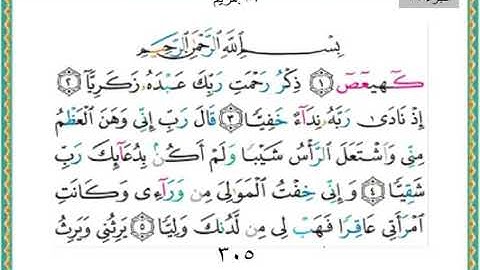 بِسْمِ اللَّهِ الرَّحْمَٰنِ الرَّحِيمِ
كٓهيعٓصٓ ﴿١﴾ ذِكْرُ رَحْمَتِ رَبِّكَ عَبْدَهُۥ زَكَرِيَّآ ﴿٢﴾
إِذْ نَادَىٰ رَبَّهُۥ نِدَآءً خَفِيًّا ﴿٣﴾ قَالَ رَبِّ إِنِّى وَهَنَ ٱلْعَظْمُ
مِنِّى وَٱشْتَعَلَ ٱلرَّأْسُ شَيْبًا وَلَمْ أَكُنۢ بِدُعَآئِكَ رَبِّ
شَقِيًّا ﴿٤﴾ وَإِنِّى خِفْتُ ٱلْمَوَٰلِىَ مِن وَرَآءِى وَكَانَتِ
ٱمْرَأَتِى عَاقِرًا فَهَبْ لِى مِن لَّدُنكَ وَلِيًّا ﴿٥﴾ يَرِثُنِى وَيَرِثُ
٣٠٥